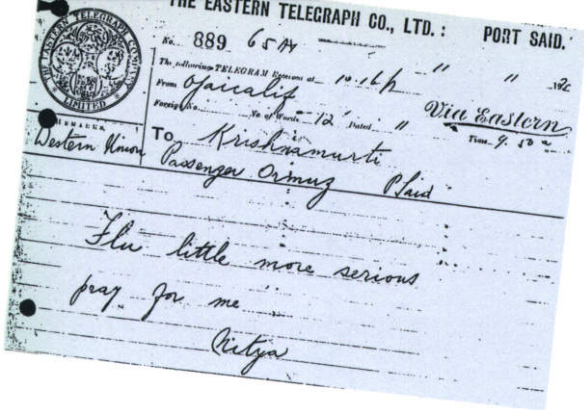 THE EASTERN TELEGRAPH CO., LTD.: PORT SAID.
THE EASTERN TELEGRAPH COMPANY LIMITED
No. 889 65 M
The following TELEGRAM Received at 10.16 p " " 192
From Ojaicalif
Foreign No. No of Words 12 Dated 11 Time 9. 50
Via Eastern
REMARKS.
Western Union
To Krishnamurti
Passenger Ormuz PSaid
Flu little more serious
pray for me
Nitya